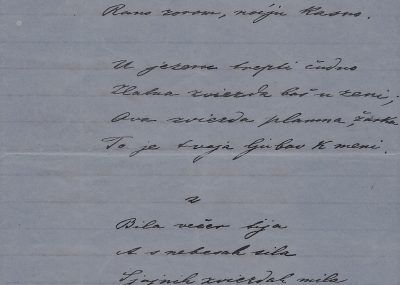 Rano zorom, noćju kasno.
U jezeru trepti čudno
Zlatna zviezda baš u zeni;
Ova zviezda plamna, žarka
To je tvoja ljubav k meni.
2
Bila večer sija
A s nebesah sila
Sjajnih zviezdah mile